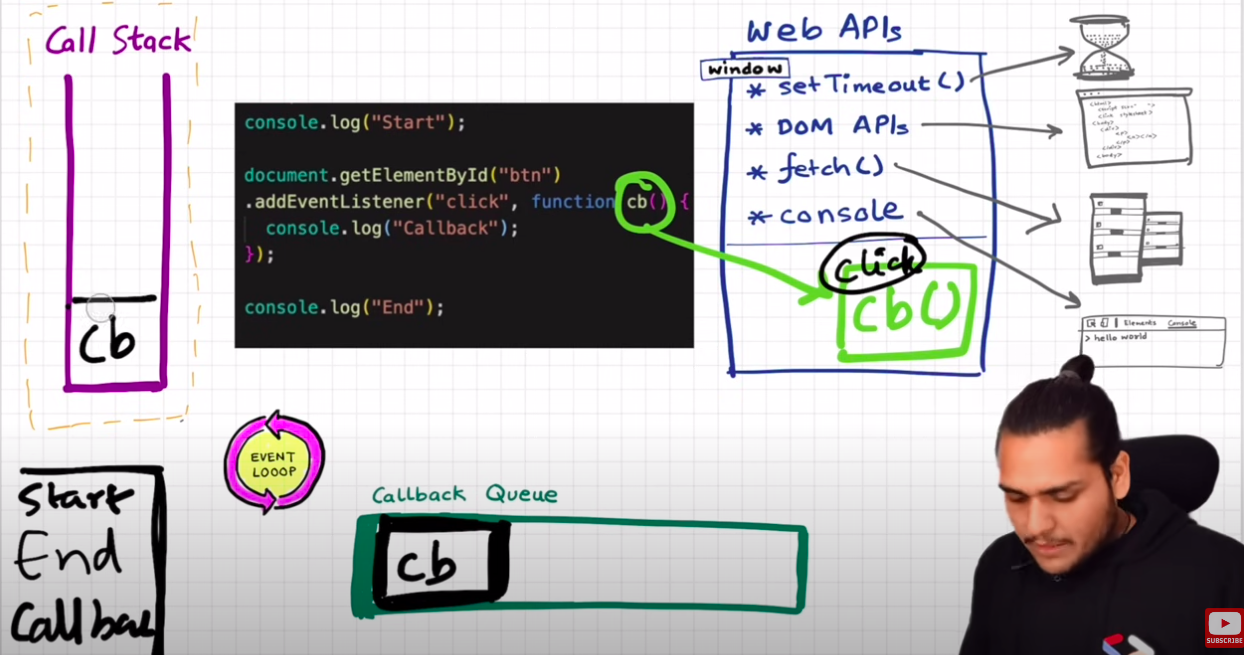 Call Stack
cb
console.log("Start");
document.getElementById("btn")
.addEventListener("click", function cb() {
console.log("Callback");
});
console.log("End");
Web APIs
window
* setTimeout()
* DOM APIs
* fetch()
* console
click
cb()
Elements Console
> hello world
Start
End
Callbac
EVENT
LOOOP
Callback Queue
cb
SUBSCRIBE